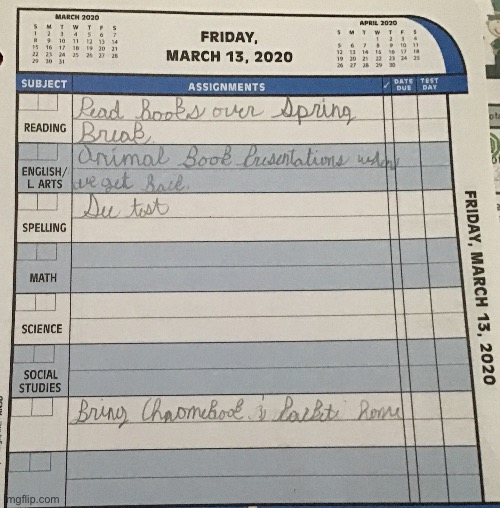 MARCH 2020
S M T W T F S
1 2 3 4 5 6 7
8 9 10 11 12 13 14
15 16 17 18 19 20 21
22 23 24 25 26 27 28
29 30 31
FRIDAY,
MARCH 13, 2020
APRIL 2020
S M T W T F S
1 2 3 4
5 6 7 8 9 10 11
12 13 14 15 16 17 18
19 20 21 22 23 24 25
26 27 28 29 30
SUBJECT ASSIGNMENTS ✓ DATE DUE TEST DAY
READING
Read books over Spring
Break
ENGLISH/
L. ARTS
Animal Book Presentations when
we get back.
SPELLING
test
MATH
SCIENCE
SOCIAL
STUDIES
Bring Chromebook & Packets home
FRIDAY, MARCH 13, 2020
mgflip.com